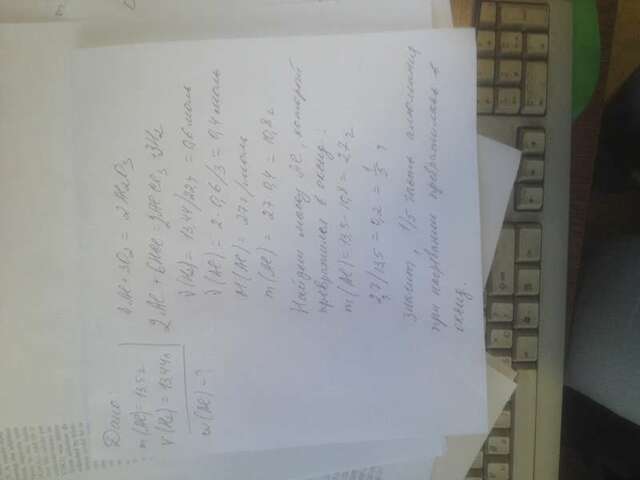 Дано:
m(Al) = 13,5 г
V(H2) = 13,44 л
w(Al) - ?
2Al + 6HCl = 2AlCl3 + 3H2
ν(H2) = 13,44/22,4 = 0,6 моль
ν(Al) = 2·0,6/3 = 0,4 моль
M(Al) = 27 г/моль
m(Al) = 27·0,4 = 10,8 г
Найдем массу Al, который
превратился в оксид:
m(Al) = 13,5-10,8 = 2,7 г
2,7/13,5 = 0,2 = 1/5
значит, 1/5 часть алюминия
при нагревании превратилась в
оксид.